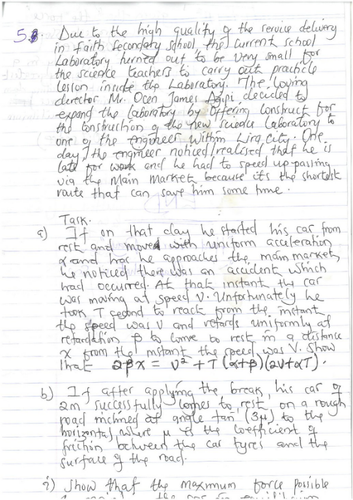 5. Due to the high quality of the service delivery
in faith secondary school, the current school
Laboratory turned out to be very small for
the science teachers to carry out practicle
lesson inside the Laboratory. The loving
director Mr. Ocen James decided to
expand the laboratory by offering construct for
the construction of the new science laboratory to
one of the engineer within Lira city. One
day, the engineer noticed/realised that he is
late for work and he had to speed up passing
via the Main Market because its the shortest
route that can save him some time.
Task.
a) If on that day he started his car from
rest and moved with uniform acceleration
α and he approaches the main market,
he noticed there was an accident which
had occurred. At that instant the car
was moving at speed V. Unfortunately he
took T second to reach from the instant
the speed was V and retards uniformly at
retardation β to come to rest in a distance
x from the instant the speed was V. Show
that 2βx = V² + T(α+β)(2V+αT).
b) If after applying the break, his car of
2m successfully comes to rest on a rough
road inclined at angle tan⁻¹(3μ) to the
horizontal, where μ is the coefficient of
friction between the car tyres and the
surface of the road.
i) Show that the maximum force possible